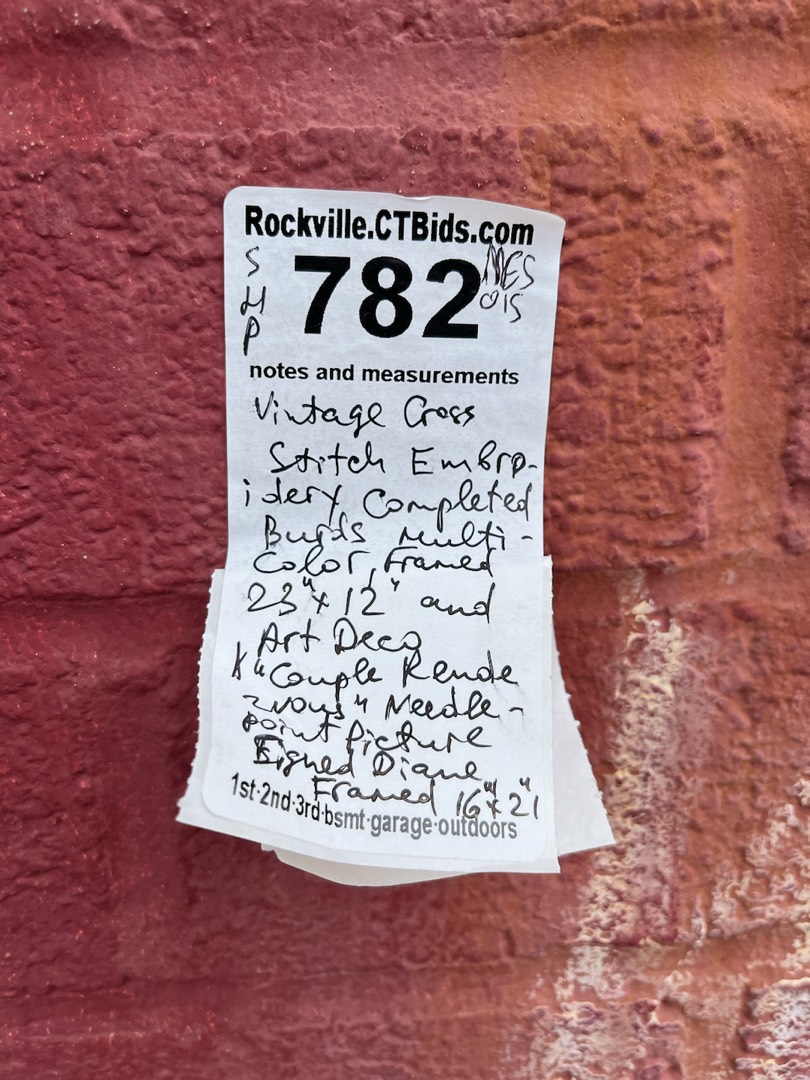 Rockville.CTBids.com
S
H
P
782
MES
015
notes and measurements
Vintage Cross
Stitch Embro-
idery Completed
Burds Multi-
Color, Framed
23" x 12" and
Art Deco
"Couple Rende
zvous" Needle-
point Picture
Signed Diane
Framed 16" x 21"
1st·2nd·3rd·bsmt·garage·outdoors